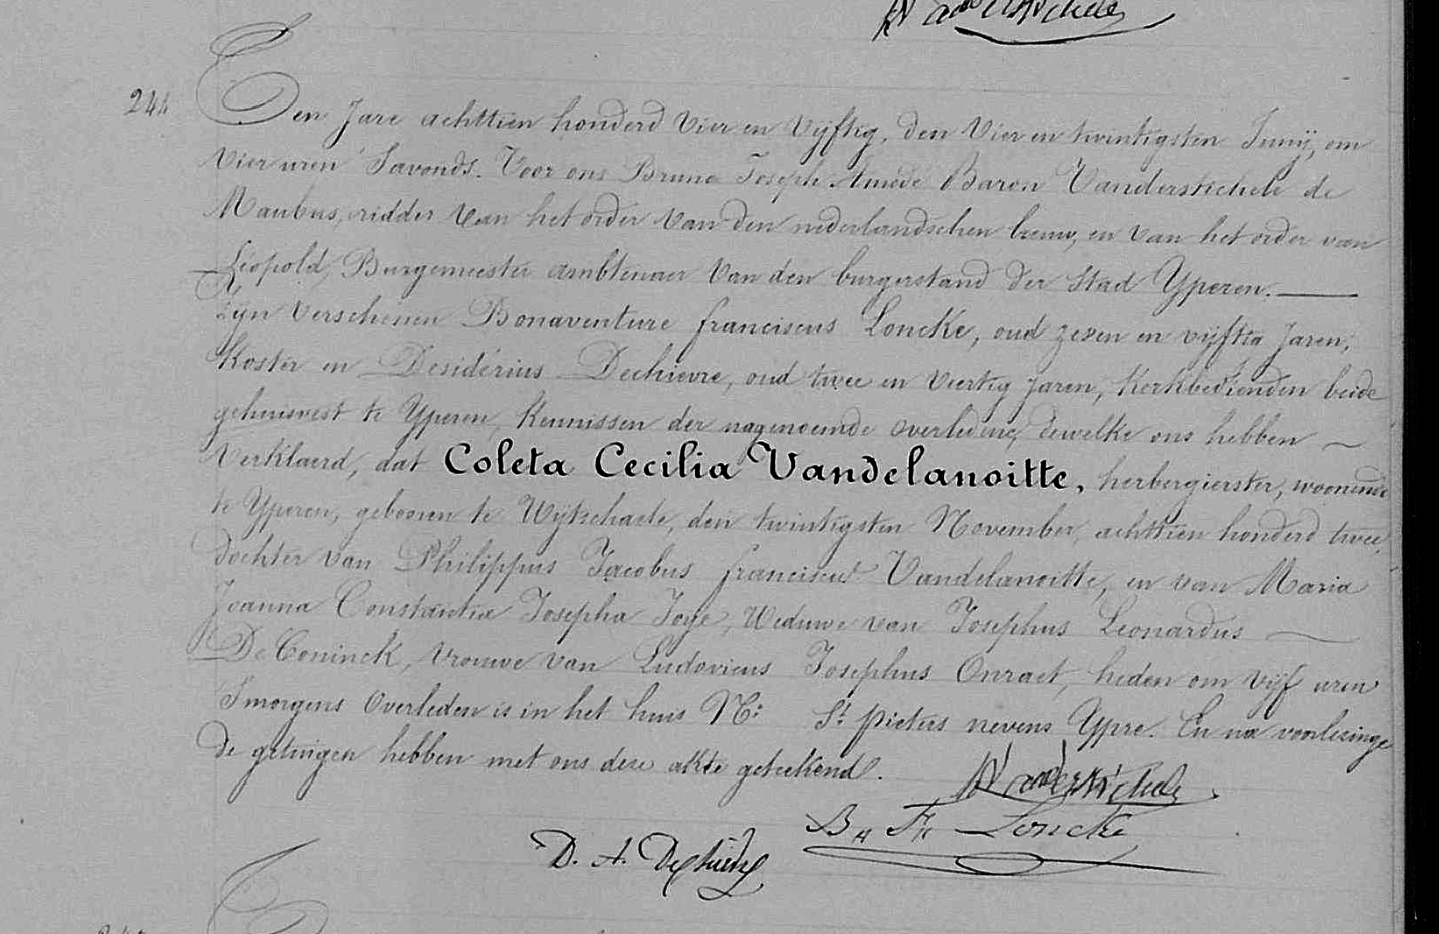 244
Den Jare achttien honderd Vier en Vijftig, den Vier en twintigsten Junij, om
Vier uren Savonds. Voor ons Bruno Joseph Amédé Baron Vanderstichele de
Maubus, ridder van het order van den nederlandschen leeuw, en van het order van
Leopold, Burgemeester ambtenaer van den burgerstand der Stad Yperen.
Zijn Verschenen Bonaventure franciscus Loncke, oud zesen en vijftig Jaren,
Koster en Desidérius Dechievre, oud twee en veertig jaren, Kerkbedienden beide
gehuisvest te Yperen, Kennissen der nagenoemde overledene, dewelke ons hebben
Verklaerd, dat Coleta Cecilia Vandelanoitte, herbergierster, woonende
te Yperen, geboren te Wijtschaete, den twintigsten November, achttien honderd twee,
dochter van Philippus Jacobus franciscus Vandelanoitte, en van Maria
Joanna Constantia Josepha Joye, Weduwe van Josephus Leonardus
De Coninck, vrouwe van Ludovicus Josephus Onraet, heden om vijf uren
Smorgens Overleden is in het huis No: St. pieters nevens Ypre. En na voorlesinge
de getuigen hebben met ons dese akte geteekend.
Vanderstichele
B. Fr. Loncke
D. A. Dechievre